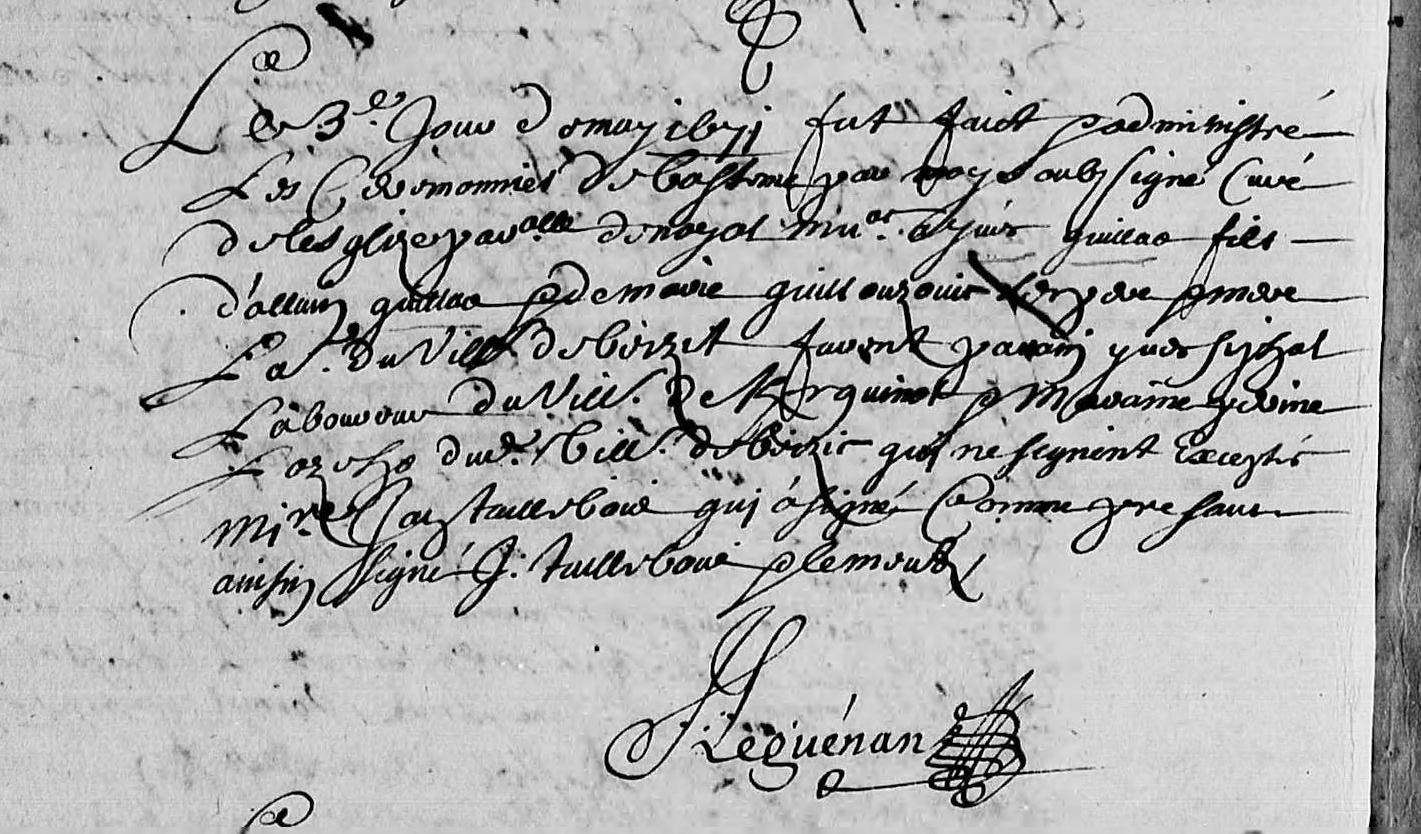 Le 3e. Jour de may 1671 fut faict & administré
Les Ceremonnies de baptesme par moy soubsigné Curé
de lesglize paroalle de noyal Mu.ac a yves guillao fils
d'allain guillao & de marie guillouzouic ses pere & mere
La. du Vill. de berzit furent parain yves
Laboureur du Vill. de Kerguinot & Maraine perine
Lozeho dud. Vill. de berzic qui ne signent Exceptés
Mi.re taillebois qui a signé Comme pressant
ainsin signé J. taillebois
J. Leguénan